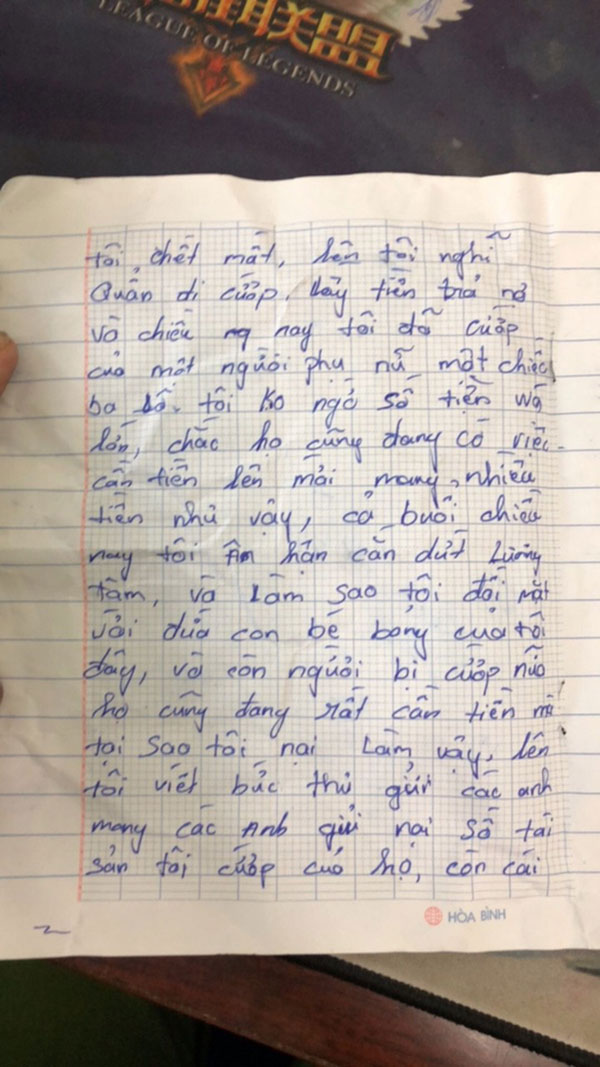 联盟
LEAGUE OF LEGENDS
tôi chết mất, lên tôi nghĩ
Quẩn đi cướp. Lấy tiền trả nợ
và chiều ng nay tôi đã cướp
của một người phụ nữ một chiếc
ba lô. tôi ko ngờ số tiền wá
lớn, chắc họ cũng đang có việc
cần tiền lên mới mang nhiều
tiền như vậy, cả buổi chiều
nay tôi Ân hận cắn dứt Lương
tâm, và Làm sao tôi đối mặt
với đứa con bé bỏng của tôi
đây, và còn người bị cướp nữa
họ cũng đang rất cần tiền mà
tại sao tôi nại Làm vậy, lên
tôi viết bức thư gửi các anh
mong các Anh gửi nại số tài
sản tôi cướp của họ, còn cái
HÒA BÌNH
2